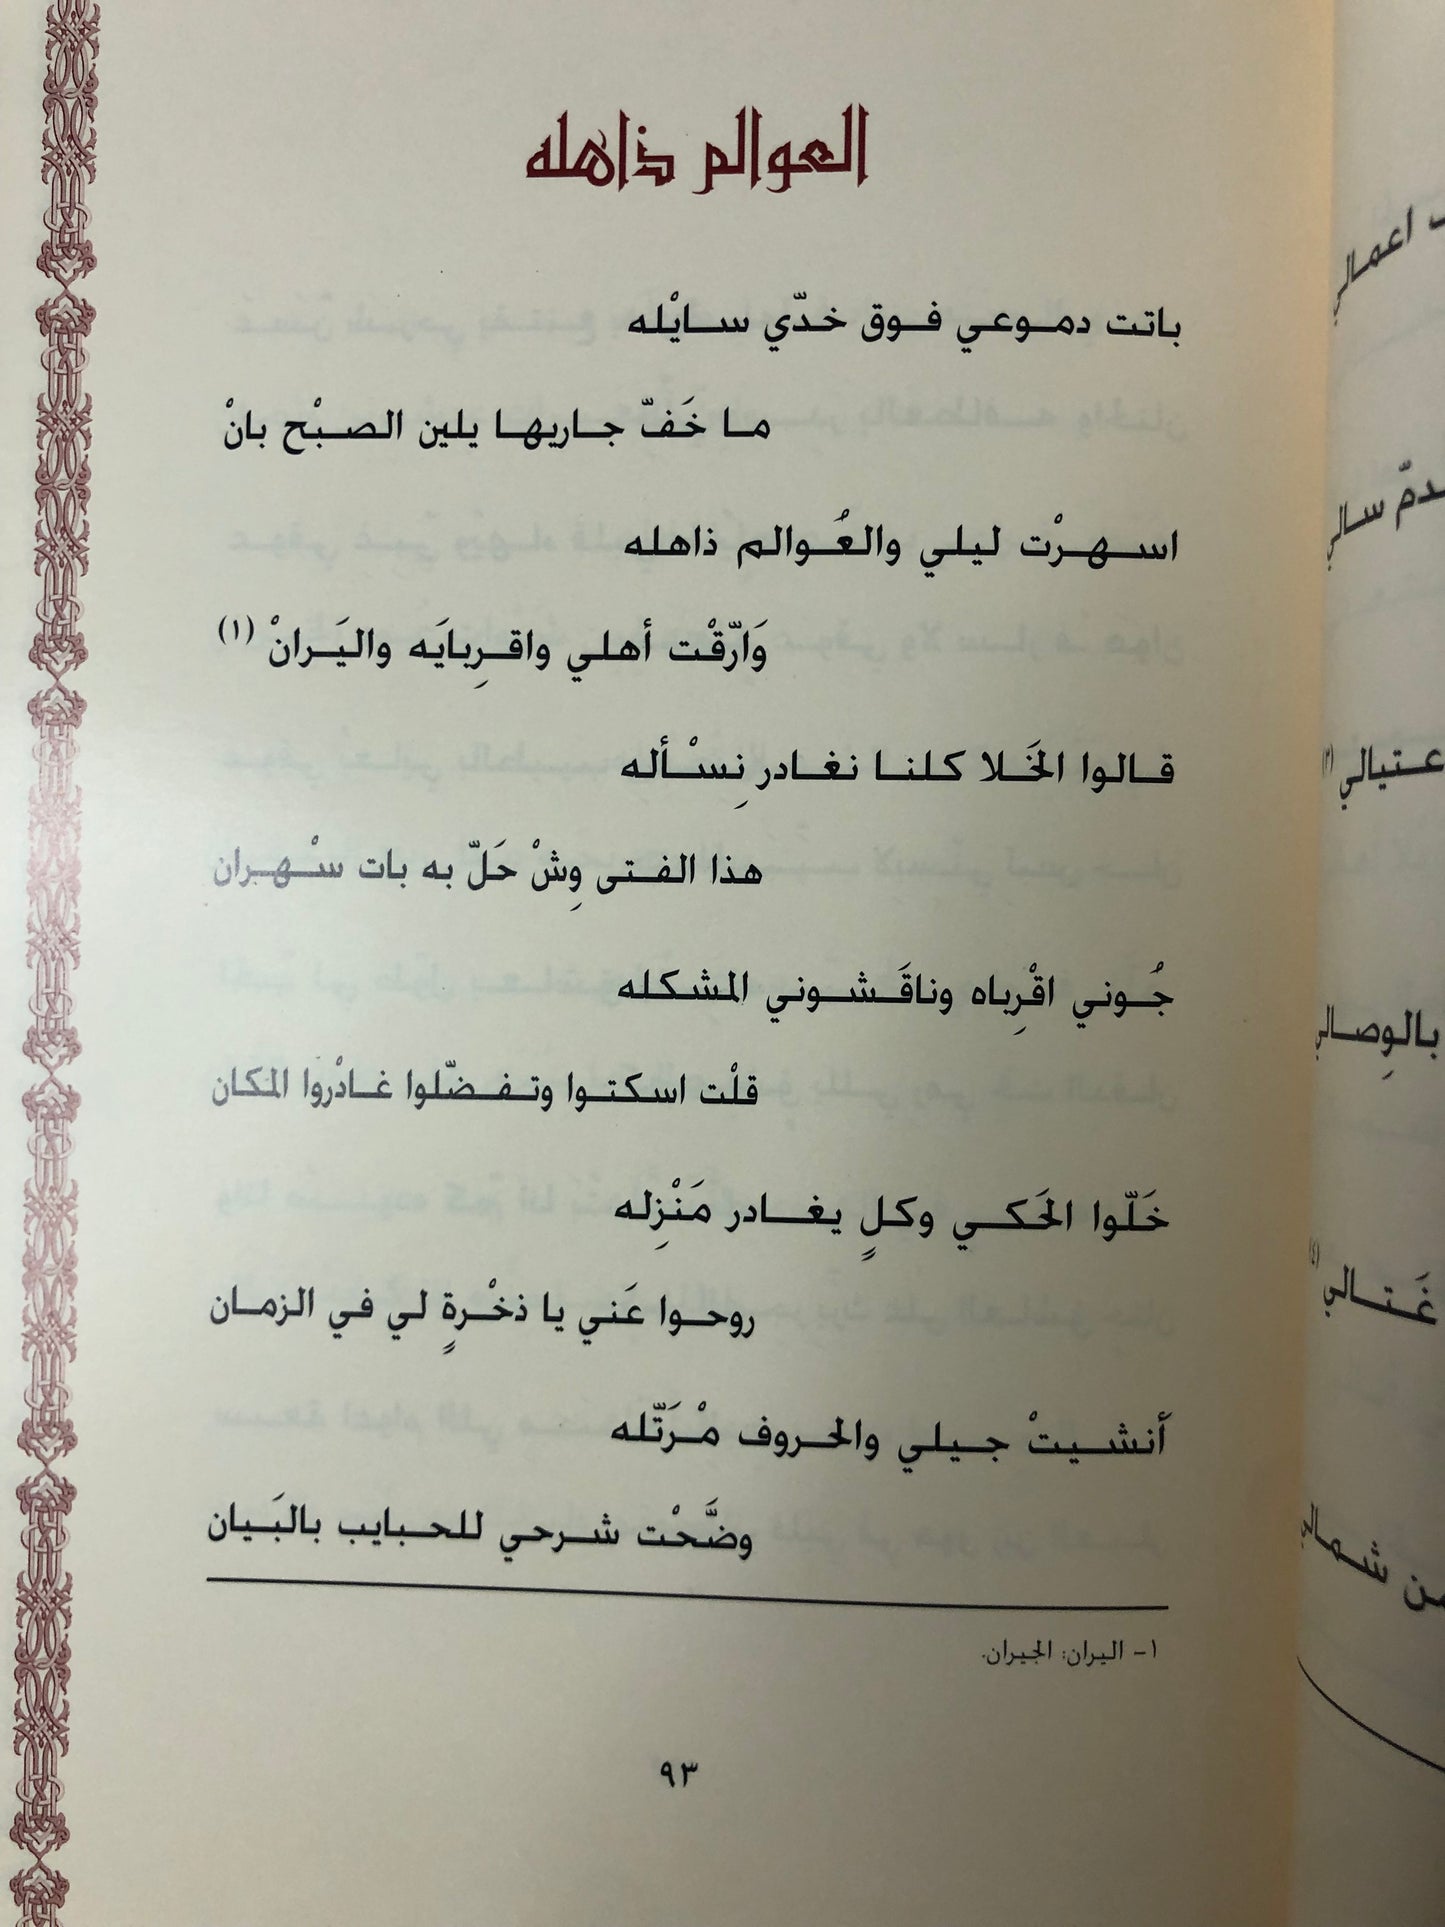 العوالم ذاهله
باتت دموعي فوق خدّي سايْله
ما خَفّ جاريها يلين الصبْح بانْ
اسهرْت ليلي والعُوالم ذاهله
وَارّقْت أهلي واقرِبايَه واليَرانْ (١)
قالوا الخَلا كلنا نغادر نِسْأله
هذا الفتى وِشْ حَلّ به بات سْهران
جُوني اقْرِباه وناقَشوني المشكله
قلْت اسكتوا وتفضّلوا غادْروا المكان
خَلّوا الحَكي وكلٍ يغادر مَنْزِله
روحوا عَني يا ذخْرةٍ لي في الزمان
أَنشيتْ جيلي والحروف مْرَتّله
وضَّحْت شرحي للحبايب بالبَيان
١- اليران: الجيران.
٩٣
اعمالي
سالي
عتيالي (٣)
بالوِصالي
غَتالي (٤)
من شمالي